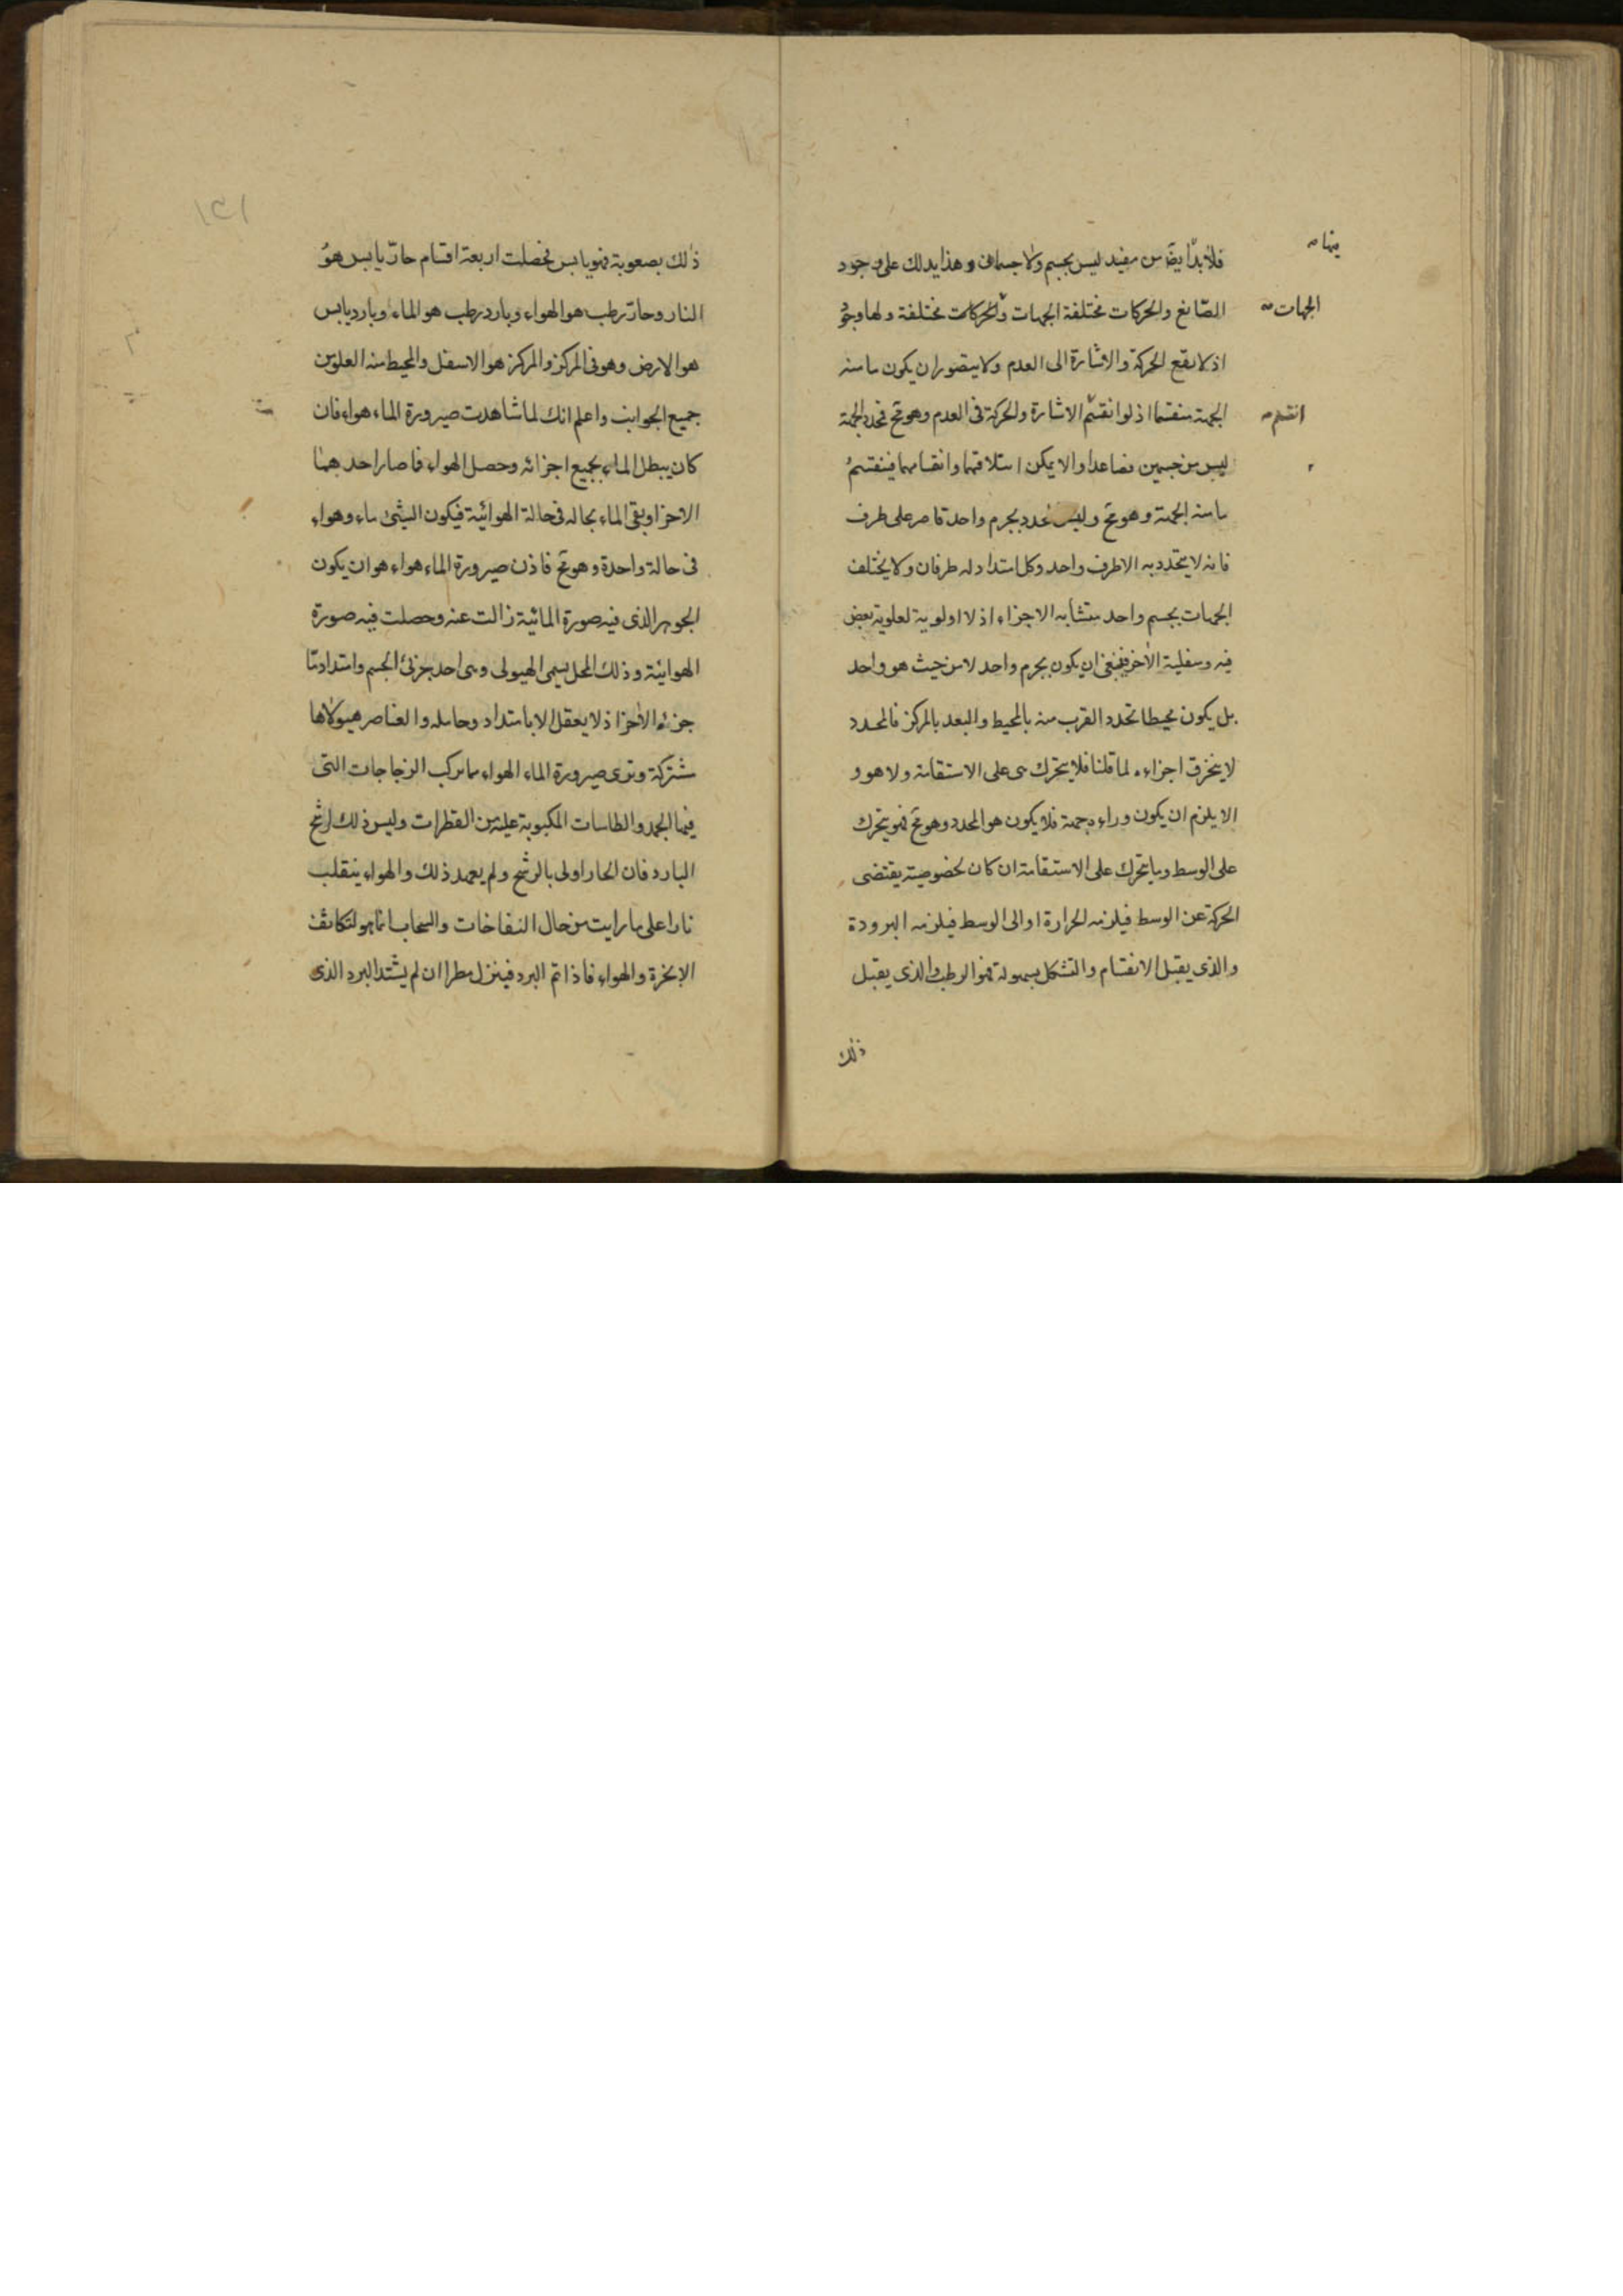 فلا بدّ ايضا من مفيد ليس بجسم ولا جسمانى وهذا يدلك على وجود
منها صح
الصّانع والحركات مختلفة الجهات والحركات مختلفة ولها وجو
الجهات صح
اذ لا يقع الحركة والاشارة الى العدم ولا يتصور ان يكون ما منه
الجهة منقسما اذ لو انقسم الاشارة والحركة فى العدم وهو مح فحدد الجهة
انقسم صح
ليس من جسمين فصاعدا والا يمكن ائتلافهما وانقسامهما فينقسم
ما منه الجهة وهو مح وليس تحدد بجرم واحد قاصر على طرف
فانه لا يتحدد به الا طرف واحد وكل امتداد له طرفان ولا يختلف
الجهات بجسم واحد متشابه الاجزاء اذ لا اولوية لعلوية بعض
فيه وسفلية الآخر فينبغى ان يكون بجرم واحد لا من حيث هو واحد
بل يكون محيطا تحدد القرب منه بالمحيط والبعد بالمركز فالمحدد
لا ينخرق اجزاءه لما قلنا فلا يتحرك هى على الاستقامة ولا هو و
الا يلزم ان يكون وراءه جهة فلا يكون هو المحدد وهو مح فهو يتحرك
على الوسط وما يتحرك على الاستقامة ان كان لخصوصيته يقتضى
الحركة عن الوسط فيلزمه الحرارة او الى الوسط فيلزمه البرودة
والذى يقبل الانقسام والتشكل بسهولة فهو الرطب والذى يقبل
ذلك
١٥١
ذلك بصعوبة فهو يابس فحصلت اربعة اقسام حارّ يابس هو
النار وحارّ رطب هو الهواء وبارد رطب هو الماء وبارد يابس
هو الارض وهو فى المركز والمركز هو الاسفل والمحيط منه العلو من
جميع الجوانب واعلم انك لما شاهدت صيرورة الماء هواء فان
كان يبطل الماء بجميع اجزائه وحصل الهواء فما صار احدهما
الاخر او بقى الماء بحاله فى حالة الهوائية فيكون الشئ ماء وهواء
فى حالة واحدة وهو مح فاذن صيرورة الماء هواء هو ان يكون
الجوهر الذى فيه صورة المائية زالت عنه وحصلت فيه صورة
الهوائية وذلك المحل يسمى الهيولى وهى احد جزئى الجسم وامتداد ما
جزءه الاخر اذ لا يعقل الا بامتداد وحامله والعناصر هيولاها
مشتركة وترى صيرورة الماء الهواء مما يركب الزجاجات التى
فيها الجمد والطاسات المكبوبة عليه من القطرات وليس ذلك لرشح
البارد فان الحار اولى بالرشح ولم يعهد ذلك والهواء ينقلب
نارا على ما رايت من حال النفاخات والسحاب انما هو لتكاثف
الابخرة والهواء فاذا تم البرد فينزل مطرا ان لم يشتد البرد الذى